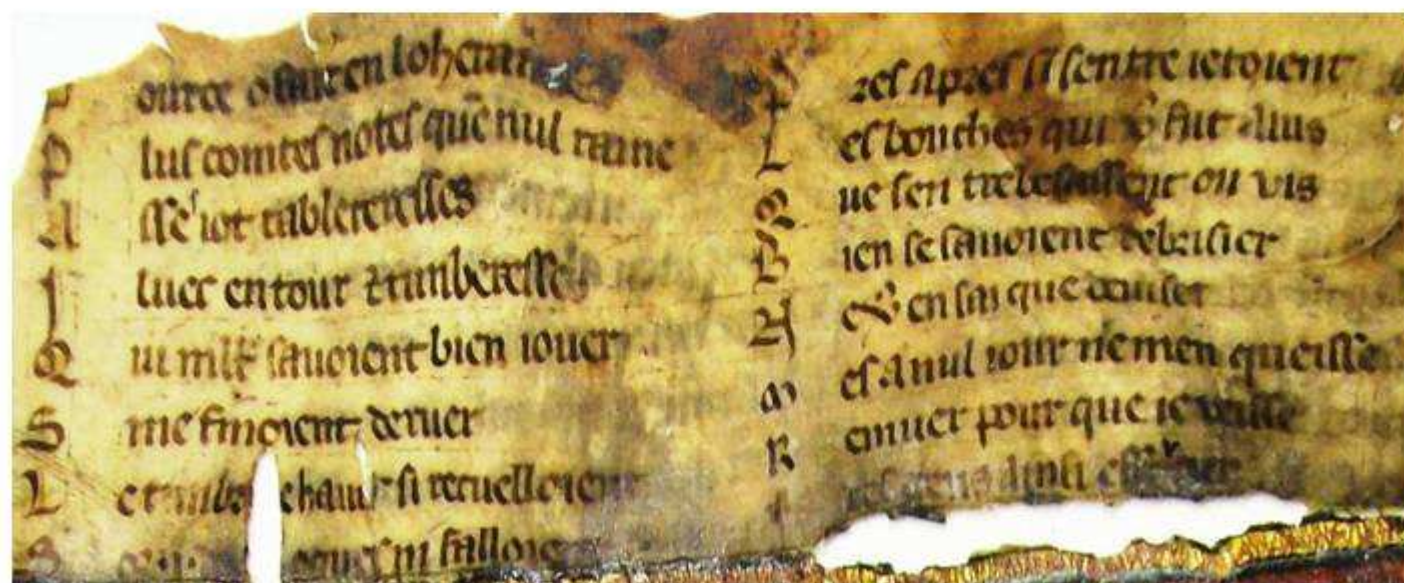 ource on fait en loherai
Plus cointes notes quē nul raine
Asse iot tableteresses
Iluec entour ⁊ timberesses
Qui mlt sauoient bien iouer
Si ne finoient de ruer
Le haut si recuelloient
S ni falloie
Pres apres si sentre ietoient
Les bouches qui vo fut auis
Que sen trebesassent ou vis
Bien se sauoient debrisier
Ne vo en sai que deuiser
Mes a nul iour ne men queisse
Remuer pour que ie veisse
ainsi